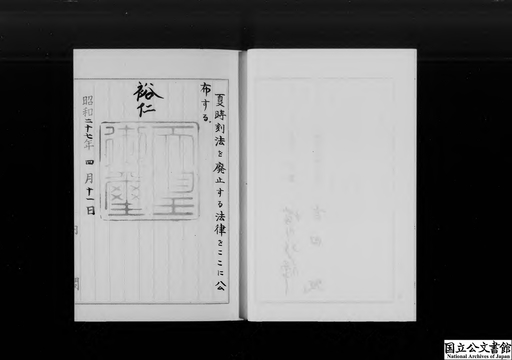 夏時刻法を廃止する法律をここに公
布する。
裕仁
天皇
御璽
昭和二十七年四月十一日
内閣
国立公文書館
National Archives of Japan